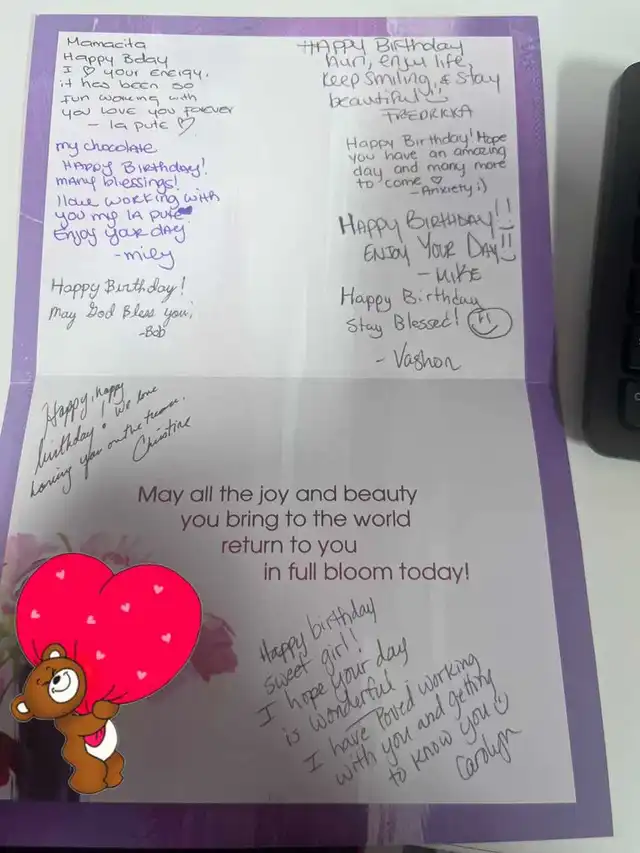 Mamacita
Happy Bday
I ♡ your energy.
it has been so
fun working with
you love you forever
- la pute ♡
my chocolate
HAPPY Birthday!
many blessings!
I love working with
you my la pute
Enjoy your day
-mily
Happy Birthday!
May God Bless you!
-Bob
Happy, happy
birthday! We love
having you on the team.
Christine
HAPPY Birthday
hun, enjoy life,
keep smiling, & stay
beautiful!
FREDRICKA
Happy Birthday! Hope
you have an amazing
day and many more
to come ♡
-Anxiety :)
HAPPY BIRTHDAY!!
ENJOY YOUR DAY!!
- MIKE
Happy Birthday
Stay Blessed!
- Vashon
May all the joy and beauty
you bring to the world
return to you
in full bloom today!
Happy birthday
sweet girl!
I hope your day
is wonderful
I have loved working
with you and getting
to know you
Carolyn